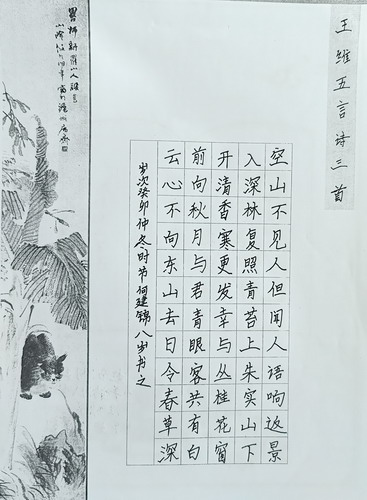 王维五言诗三首
空山不见人但闻人语响返景
入深林复照青苔上朱实山下
开清香寒更发幸与丛桂花窗
前向秋月与君青眼客共有白
云心不向东山去日令春草深
岁次癸卯仲冬时节何建锦八岁书之